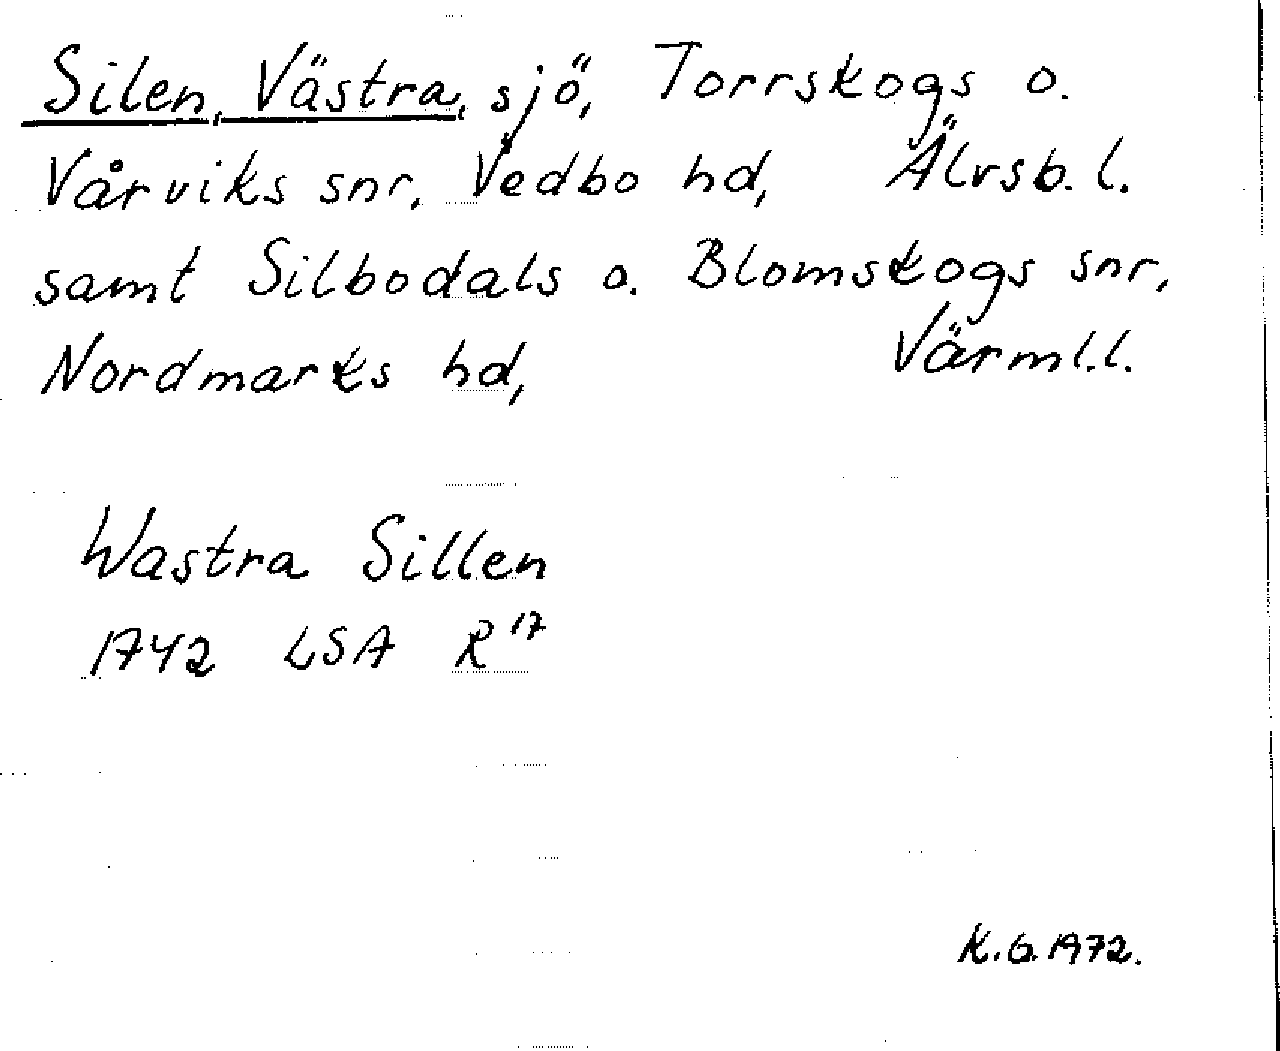 Silen, Västra, sjö, Torrskogs o.
Vårviks snr, Vedbo hd, Älvsb. l.
samt Silbodals o. Blomskogs snr,
Nordmarks hd, Värml. l.
Wastra Sillen
1742 LSA R 17
K. G. 1972.